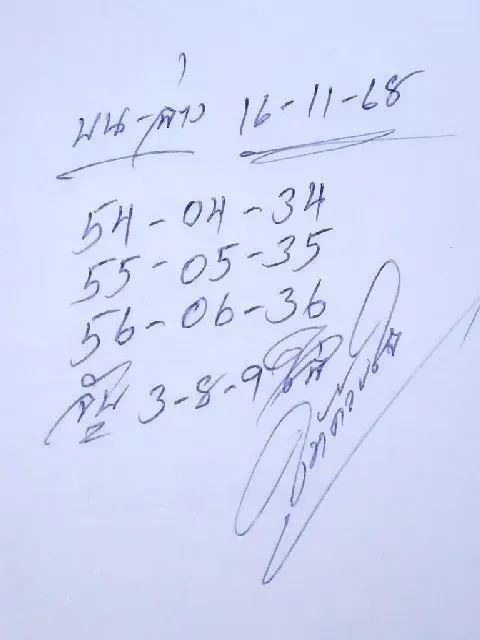 บน-ล่าง 16-11-68
54-04-34
55-05-35
56-06-36
3-8-9